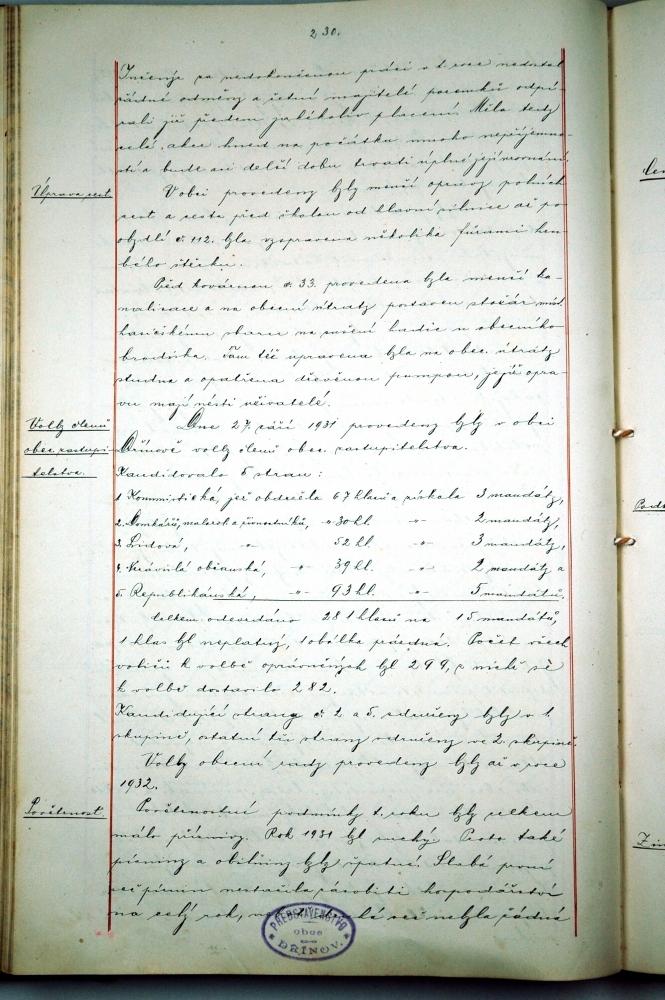 230.
Inženýr za nedokončenou práci v t. roce nedostal
řádné odměny a četní majitelé pozemků odpí-
rali již předem jakékoliv placení. Měla tedy
celá akce hned na počátku mnoho nepříjemno-
stí a bude asi delší dobu trvati úplné její urovnání.
Úprava cest.
V obci provedeny byly menší opravy polních
cest a cesta před školou od hlavní silnice až po
obydlí č. 112. byla vyspravena několika fůrami
štěrku.
Před kovárnou č. 33. provedena byla menší ka-
nalisace a na obecní útraty postaven stožár míst.
hasičskému sboru na sušení hadic u obecního
brodiska. Tam též upravena byla na obec. útraty
studna a opatřena dřevěnou pumpou, jejíž opra-
vu mají nésti uživatelé.
Volby členů
obec. zastupi-
telstva.
Dne 27. září 1931 provedeny byly v obci
Dřínově volby členů obec. zastupitelstva.
Kandidovalo 5 stran:
1. Kommistická, jež obdržela 67 hlasů a získala 3 mandáty,
2. Domkářů, malorol. a živnostníků, -"- 30 hl. -"- 2 mandáty,
3. Lidová, -"- 52 hl. -"- 3 mandáty,
4. Nezávislá občanská, -"- 39 hl. -"- 2 mandáty a
5. Republikánská, -"- 93 hl. -"- 5 mandátů.
Celkem odevzdáno 281 hlasů na 15 mandátů,
1 hlas byl neplatný, 1 obálka prázdná. Počet všech
voličů k volbě oprávněných byl 299, z nichž se
k volbě dostavilo 282.
Kandidující strany č. 2 a 5. sdruženy byly v 1.
skupině, ostatní tři strany sdruženy ve 2. skupině.
Volby obecní rady provedeny byly až v roce
1932.
Povětrnost.
Povětrnostní podmínky t. roku byly celkem
málo příznivy. Rok 1931 byl suchý. Proto také
pícniny a obilniny byly špatné. Slabá první
seč pícnin nestačila zásobiti hospodářství
na celý rok, seč nebyla žádná
PŘEDSTAVENSTVO
obce
DŘÍNOV.